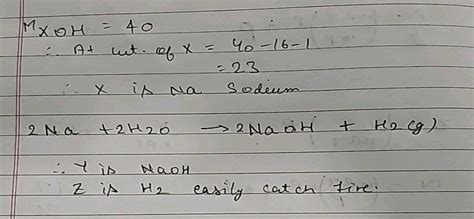 MXOH = 40
∴ At wt. of X = 40-16-1
= 23
∴ X is Na Sodium
2Na + 2H2O → 2NaOH + H2(g)
∴ Y is NaOH
Z is H2 easily catch fire.